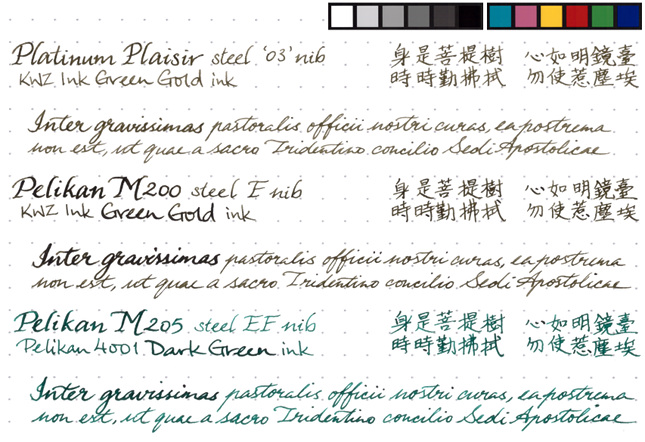 Platinum Plaisir steel '03' nib 身是菩提樹 心如明鏡臺
KWZ Ink Green Gold ink 時時勤拂拭 勿使惹塵埃
Inter gravissimas pastoralis officii nostri curas, ea postrema
non est, ut quae a sacro Tridentino concilio Sedi Apostolicae
Pelikan M200 steel F nib 身是菩提樹 心如明鏡臺
KWZ Ink Green Gold ink 時時勤拂拭 勿使惹塵埃
Inter gravissimas pastoralis officii nostri curas, ea postrema
non est, ut quae a sacro Tridentino concilio Sedi Apostolicae
Pelikan M205 steel EF nib 身是菩提樹 心如明鏡臺
Pelikan 4001 Dark Green ink 時時勤拂拭 勿使惹塵埃
Inter gravissimas pastoralis officii nostri curas, ea postrema
non est, ut quae a sacro Tridentino concilio Sedi Apostolicae